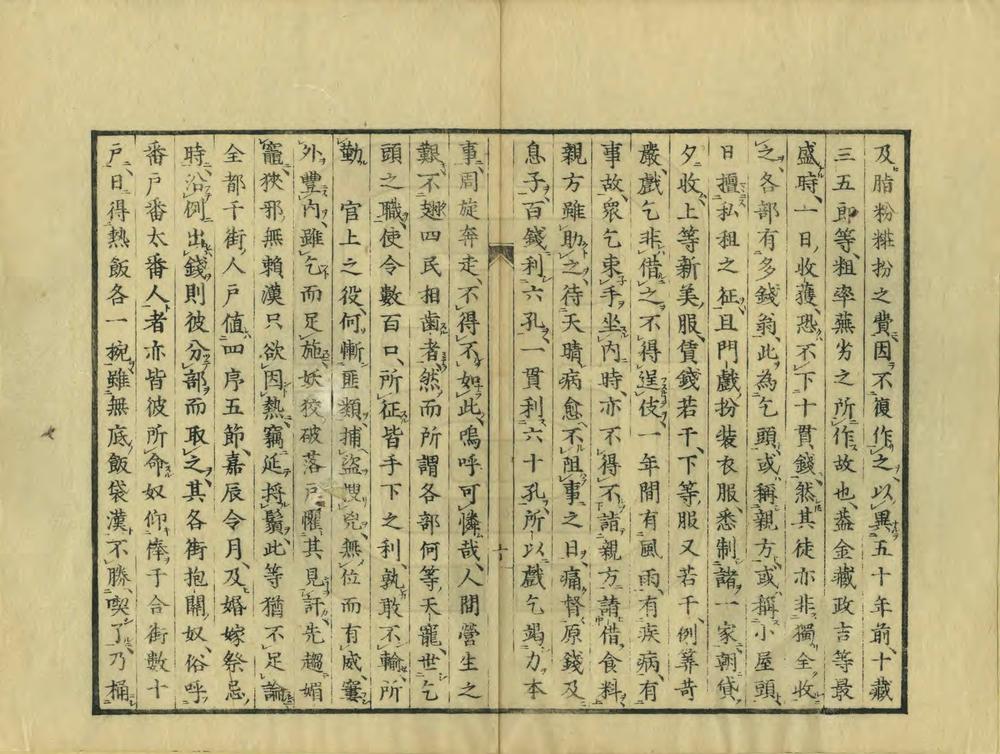 及脂粉雑扮之費因不復作之以異五十年前十藏
三五即等粗率蕪劣之所作故也蓋金藏政吉等最
盛時一日收獲恐不下十貫錢然其徒亦非獨全收
之各部有多錢翁此為乞頭或稱親方或稱小屋頭
日擅私租之征且門戲扮装衣服悉制諸一家朝貸
夕收上等新美服賃錢若干下等服又若干例筭苛
嚴戲乞非借之不得逞伎一年間有風雨有疾病有
事故衆乞束手坐内時亦不得不詣親方請借食料
親方雖助之待天晴病愈不阻事之日痛督原錢及
息子百錢利六孔一貫利六十孔所以戲乞竭力本
事周旋奔走不得不如此嗚呼可憐哉人間營生之
艱不翅四民相齒者然而所謂各部何等天寵世乞
頭之職使令數百口所征皆手下之利孰敢不輸所
勤 官上之役何慚匪類捕盜捜兇無位而有威寠
外豐内雖乞而足施妖狡破落戸懼其見訐先趨媚
竈狹邪無賴漢只欲因熱竊延捋鬚此等猶不足論
全都千街人戸值四序五節嘉辰令月及婚嫁祭忌
時沿例出錢則彼分部而取之其各街抱關奴俗呼
番戸番太番人者亦皆彼所命奴仰俸于合街數十
戸日得熱飯各一椀雖無底飯袋漢不勝喫了乃桶
十